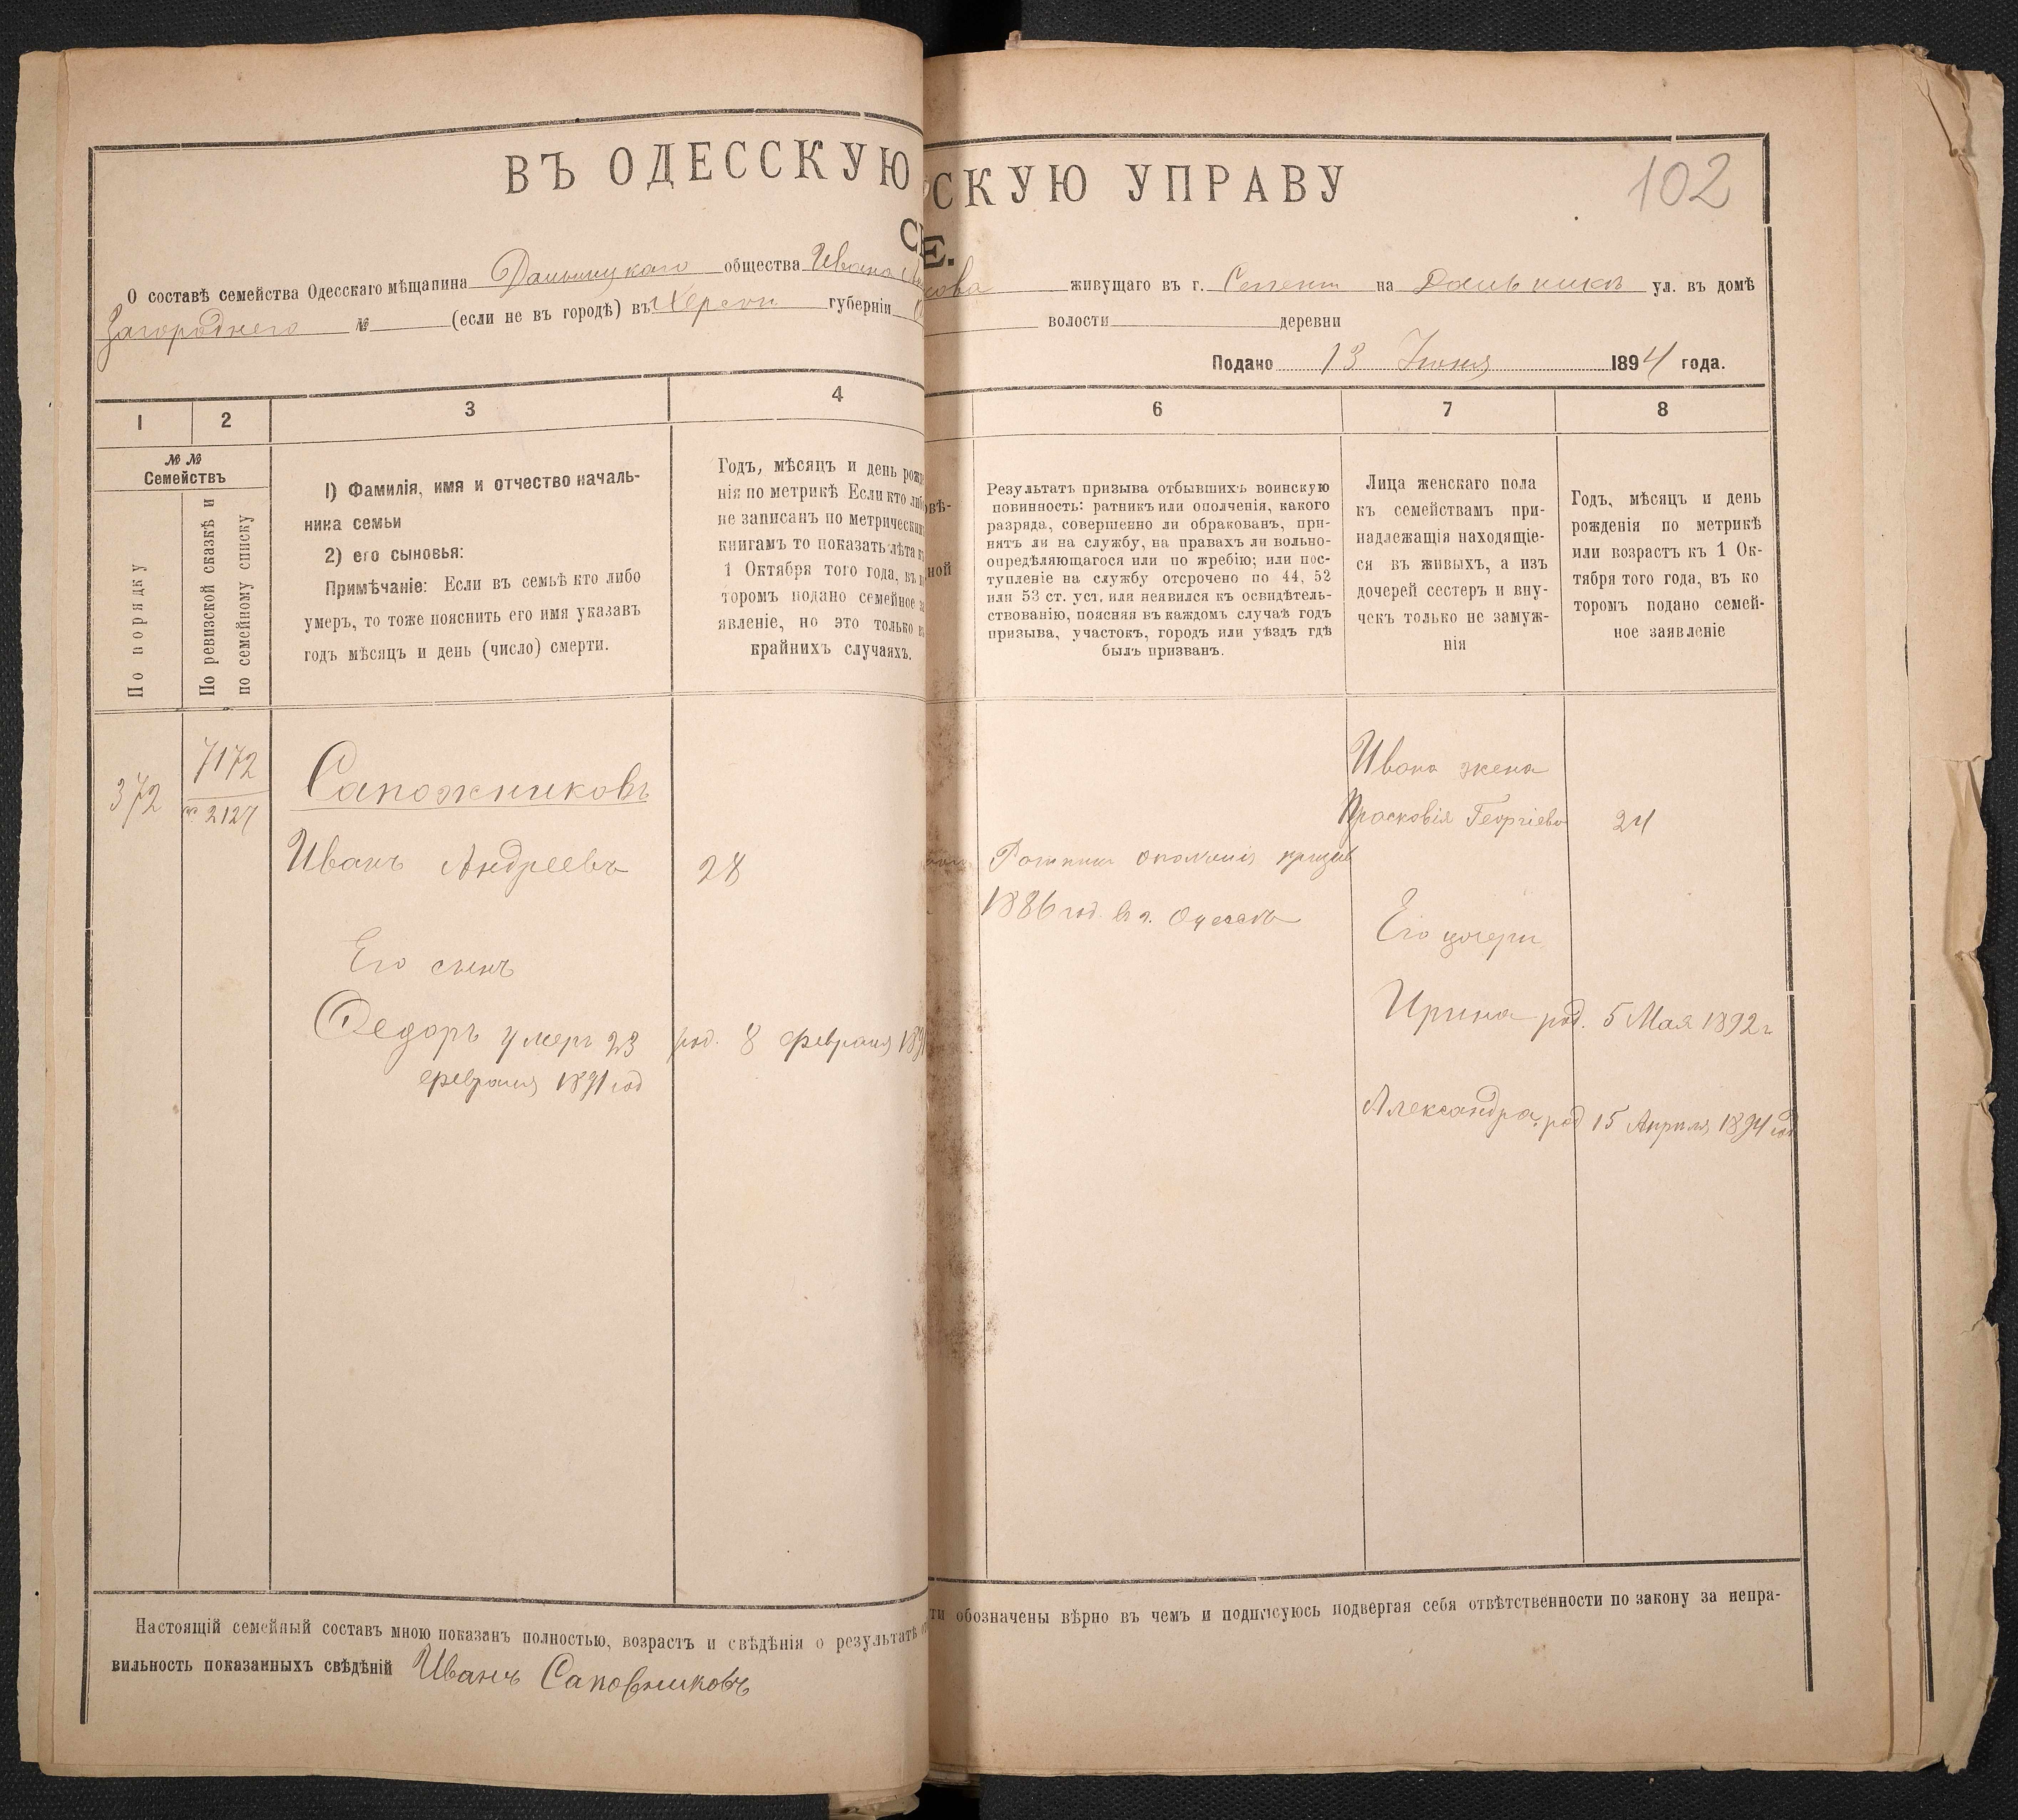 ВЪ ОДЕССКУЮ
СКУЮ УПРАВУ
102
Е.
О составѣ семейства Одесскаго мѣщанина Дальницкаго общества Ивана
кова живущаго въ г. Селени на Дальникъ ул. въ домѣ
Загороднего № (если не въ городѣ) въ Херсон губерніи
волости деревни
Подано 13 Июня 1894 года.
1 2 3 4
6 7 8
№ №
Семействъ
По порядку
По ревизской сказкѣ и
по семейному списку
1) Фамилія, имя и отчество началь-
ника семьи
2) его сыновья:
Примѣчаніе: Если въ семьѣ кто либо
умеръ, то тоже пояснить его имя указавъ
годъ мѣсяцъ и день (число) смерти.
Годъ, мѣсяцъ и день рожд
нія по метрикѣ Если кто либо
не записанъ по метрическимъ
книгамъ то показать лѣта к
1 Октября того года, въ
торомъ подано семейное за
явленіе, но это только въ
крайнихъ случаяхъ.
овѣ-
ной
Результатъ призыва отбывшихъ воинскую
повинность: ратникъ или ополченія, какого
разряда, совершенно ли обракованъ, при-
нятъ ли на службу, на правахъ ли вольно-
опредѣляющагося или по жребію; или пос-
тупленіе на службу отсрочено по 44, 52
или 53 ст. уст. или неявился къ освидѣтель-
ствованію, поясняя въ каждомъ случаѣ годъ
призыва, участокъ, городъ или уѣздъ гдѣ
былъ призванъ.
Лица женскаго пола
къ семействамъ при-
надлежащія находящіе-
ся въ живыхъ, а изъ
дочерей сестеръ и вну-
чекъ только не замуж-
нія
Годъ, мѣсяцъ и день
рожденія по метрикѣ
или возрастъ къ 1 Ок-
тября того года, въ ко
торомъ подано семей-
ное заявленіе
372
7172
2127
Сапожниковъ
Иванъ Андреевъ 28
Его сынъ
Федоръ умеръ 23 род. 8 февраля 189
февраля 1891 год
Ратник ополченія призыв
1886 год. в г. Одессѣ
Ивана жена
Прасковія Георгіева 24
Его дочери
Ирина род. 5 Мая 1892 г
Александра род 15 Апреля 1894 год
Настоящій семейный составъ мною показанъ полностью, возрастъ и свѣдѣнія о результатѣ
ти обозначены вѣрно въ чемъ и подписуюсь подвергая себя отвѣтственности по закону за непра-
вильность показанныхъ свѣдѣній Иванъ Сапожниковъ